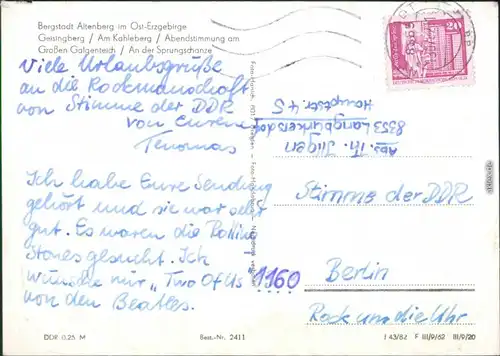 Bergstadt Altenberg im Ost-Erzgebirge
Geisingberg / Am Kahleberg / Abendstimmung am
Großen Galgenteich / An der Sprungschanze
Viele Urlaubsgrüße
an die Rockmannschaft
von Stimme der DDR
von Eurem
Ich habe Eure Sendung
gehört und sie war sehr
gut. Es waren die Rolling
Stones gesucht. Ich
wünsche mir „Two Of Us"
von den Beatles.
Abs. Th. Jürgen
8353 Langburkersdorf
Hauptstr. 45
20
Stimme der DDR
1160 Berlin
Rock um die Uhr
DDR 0,25 M
Best.-Nr. 2411
I 43/82 F III/9/62 III/9/20